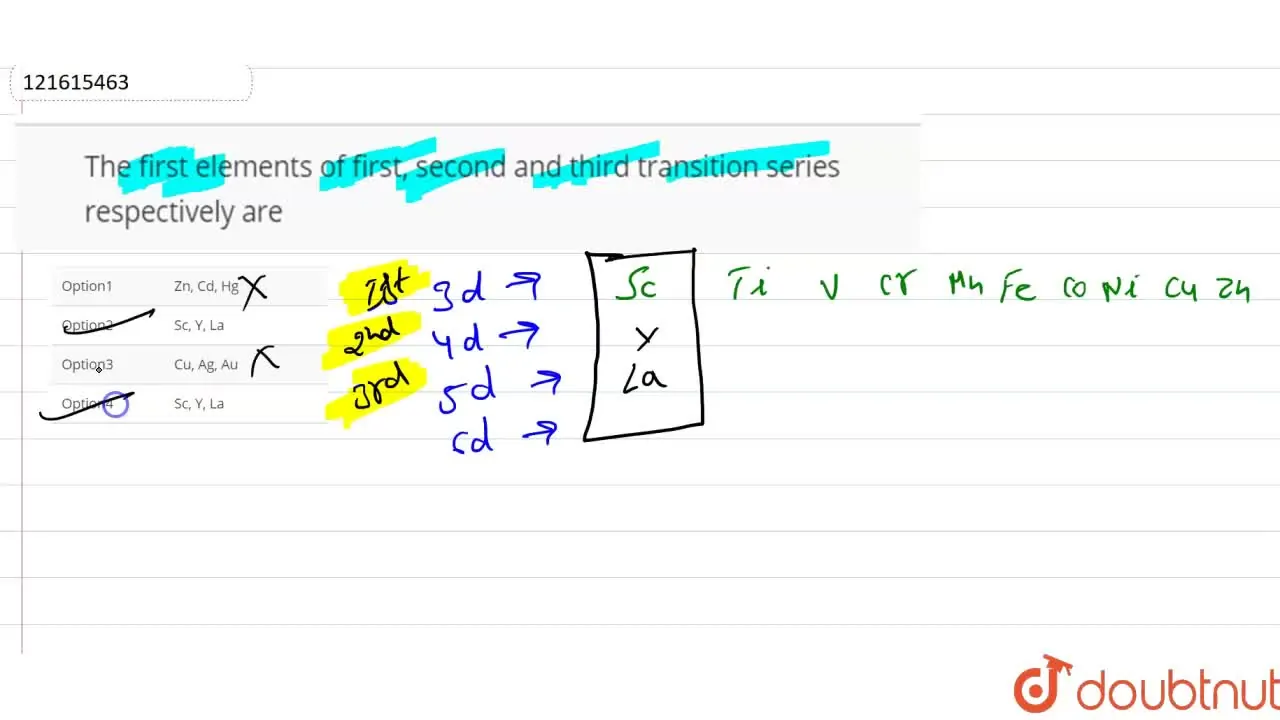 121615463
The first elements of first, second and third transition series
respectively are
Option1 Zn, Cd, Hg X
Option2 Sc, Y, La
Option3 Cu, Ag, Au X
Option4 Sc, Y, La
Ist 3d → Sc Ti V Cr Mn Fe Co Ni Cu Zn
2nd 4d → Y
3rd 5d → La
6d →
doubtnut